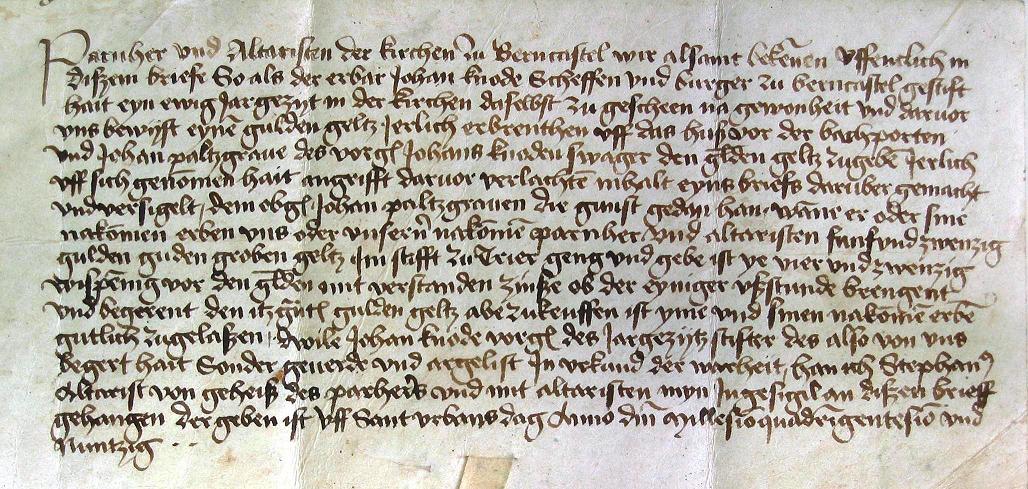 Parnher vnd Altaristen der kirchen zu Berncastel wir alsamt bekēnen vffentlich in
diszem briefe So als der erbar Johan knode Scheffen vnd burger zu berncastel gestift
hait eyn ewig Jargezijt in der kirchen daselbst zu gescheen na gewonheit vnd daruor
vns bewyst eynē gulden geltz Jerlich erbrenthen vff das husz vor der bachporten
vnd Johan paltzgraue des vorg Johans knoden swager den gldē geltz zugebē Jerlich
vff sich genōmen hait angrifft daruor verlachtē inhalt eyns briefs darüber gemacht
vnd versigelt, dem obg Johan paltzgrauen die gunst gedan han, wāne er oder sine
nakōmen erben vns oder vnsern nakōmē parnher vnd altaristen funfvnd zwenzig
gulden guden groben geltz Jm stifft zu Trier geng vnd gebe ist ye vier vnd zwenzig
wispēnig vor den gldē mit verstanden zinsze ob der eyniger vszstunde brengent
vnd begerent den itzgnt gulden geltz abe zukeuffen ist yme vnd sinen nakōmē erbē
gutlich zugelaszen, dwile Johan knode vorg des Jargezijtz stifter des also von vns
begert hait Sonder geuerde vnd argelist Jn vrkund der warheit han ich Stephan
Altarist von geheisz des parhers vnd mit altaristen myn Jngesigel an diszen brieff
gehangen der geben ist vff Sant vrbans dag Anno dm̄ Millesio quadringentesio vnd
Nuntzig